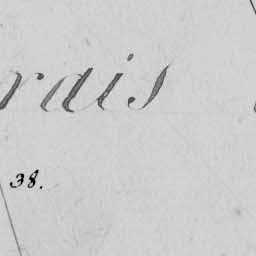 rais
38.